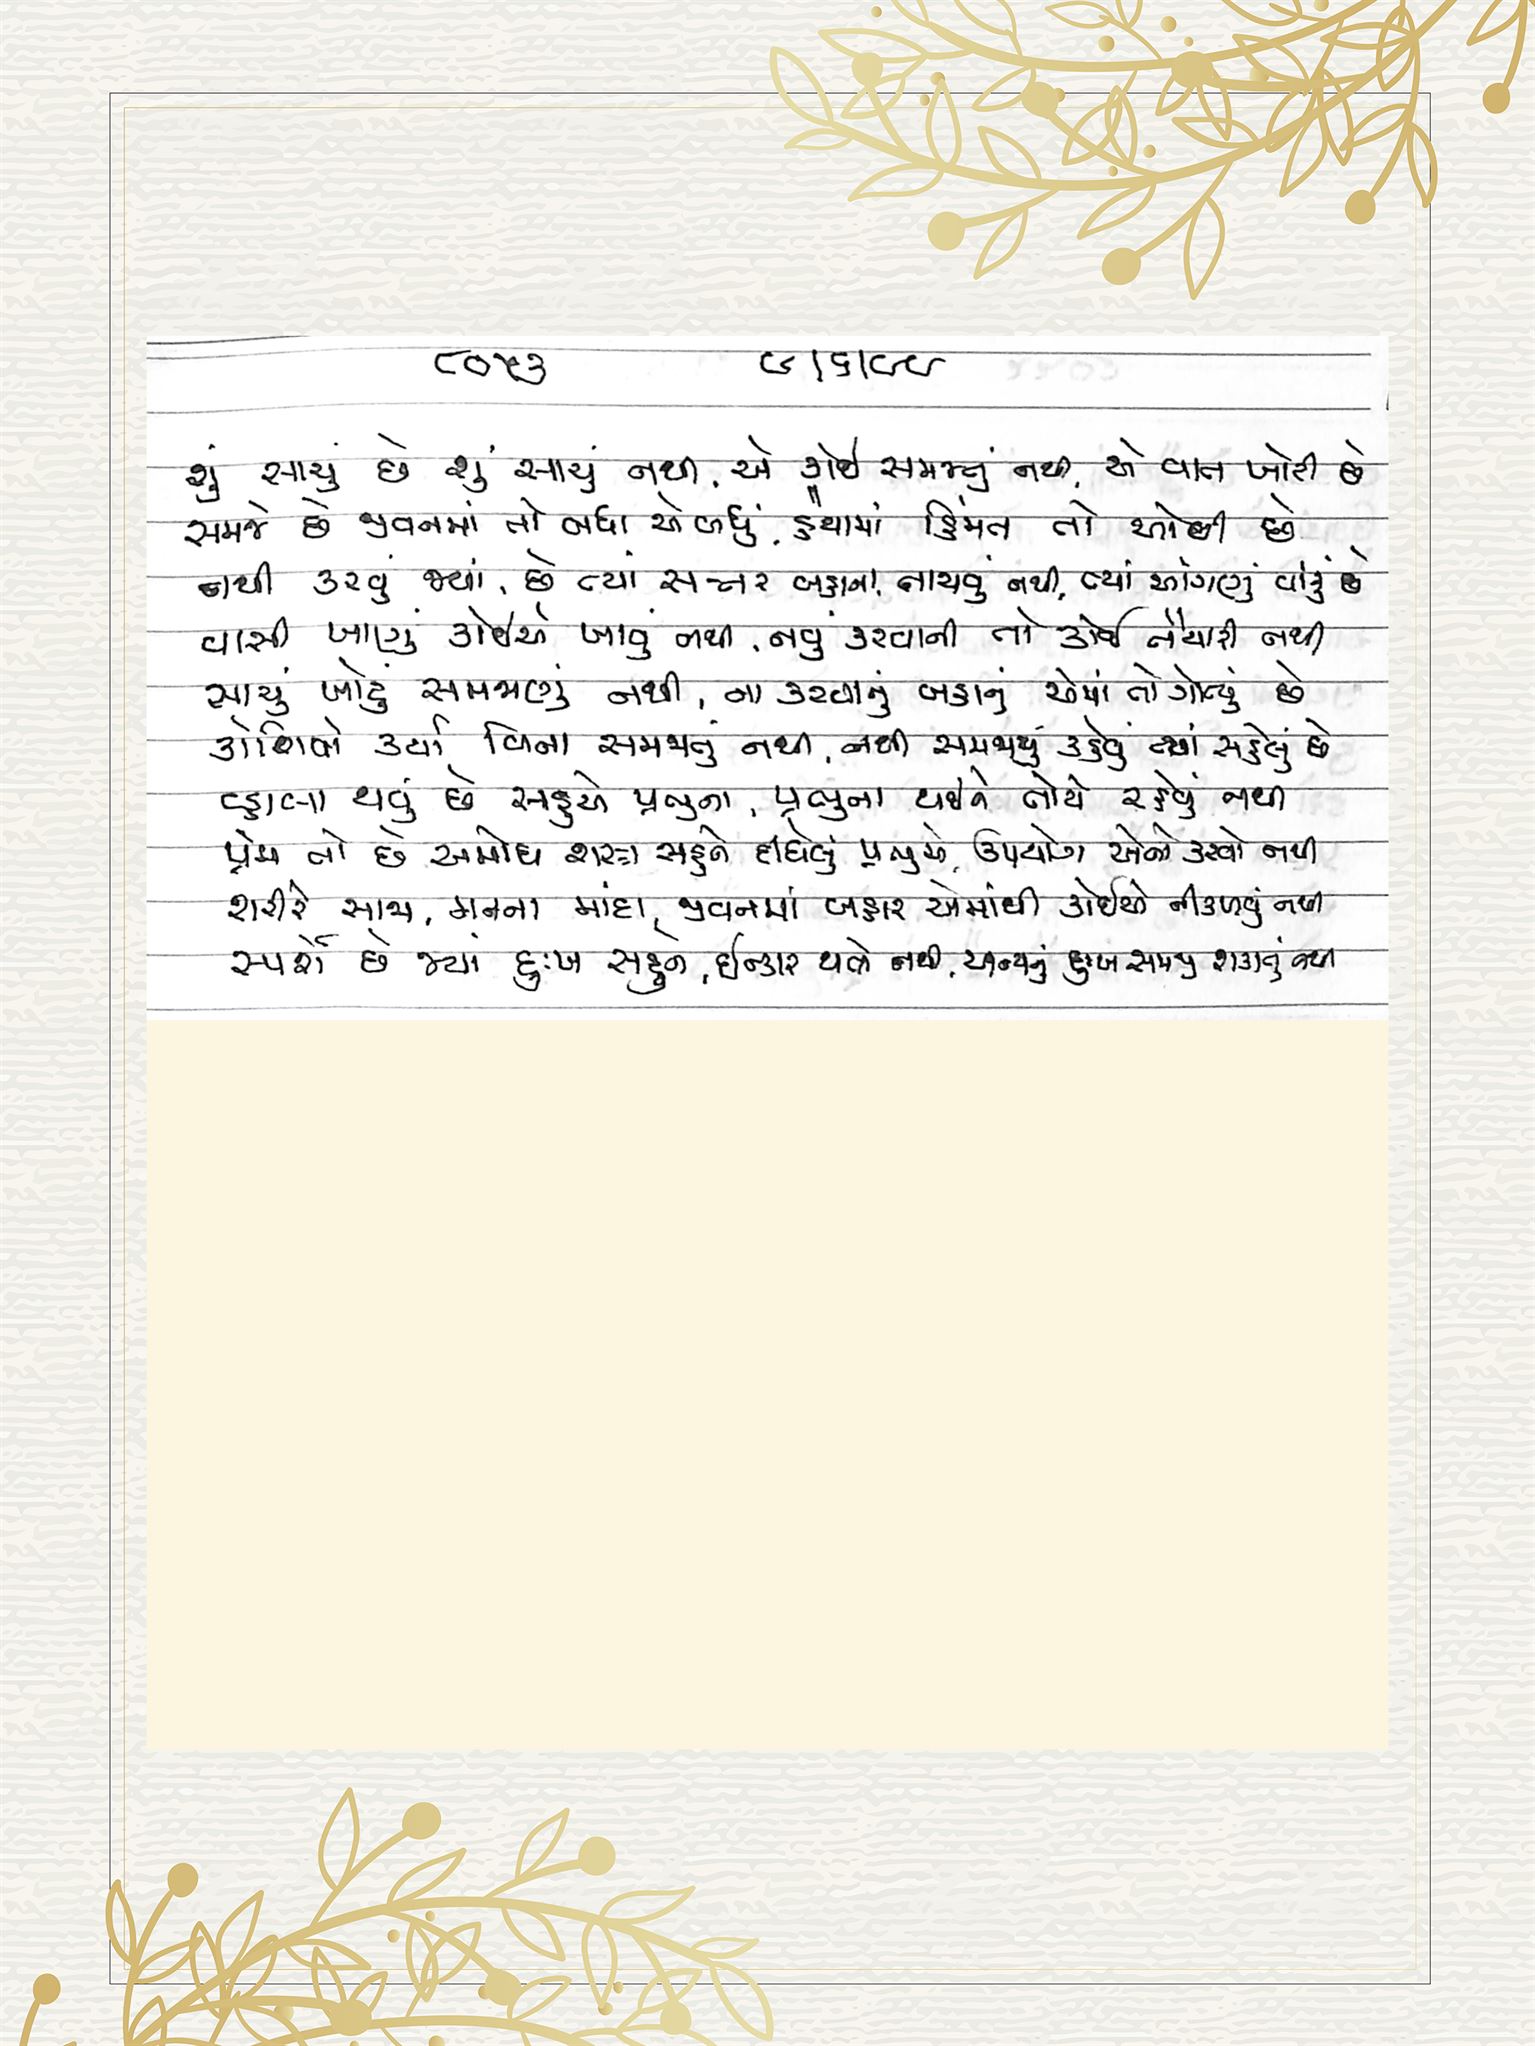 ૮૦૫૩ ૯/૬/૯૯
શું સાચું છે શું સાચું નથી, એ કોઈ સમજતું નથી, એ વાત ખોટી છે
સમજે છે જીવનમાં તો બધા એ બધું, કથામાં કિંમત તો ઓછી છે
નથી કરવું જ્યાં, છે ત્યાં સત્તર બહાના, નાચવું નથી, ત્યાં આંગણું વાંકું છે
વાસી ખાણું કોઈએ ખાવું નથી, નવું કરવાની તો કોઈ તૈયારી નથી
સાચું ખોટું સમજાણું નથી, ના કરવાનું બહાનું એમાં તો ગોત્યું છે
કોશિશે કર્યા વિના સમજાતું નથી, નથી સમજાયું કહેવું ત્યાં સહેલું છે
વ્હાલા થવું છે સહુએ પ્રભુના, પ્રભુના થઈને તોયે રહેવું નથી
પ્રેમ તો છે અમોઘ શસ્ત્ર સહુને દીધેલું પ્રભુએ, ઉપયોગ એનો કરવો નથી
શરીરે સાજા, મનના માંદા, જીવનમાં બહાર એમાંથી કોઈએ નીકળવું નથી
સ્પર્શે છે જ્યાં દુઃખ સહુને, ઈન્કાર થાતો નથી, અન્યનું દુઃખ સમજી શકાતું નથી